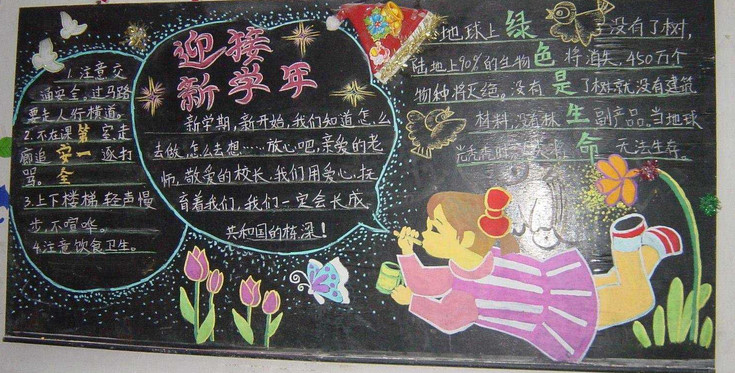 1.注意交
通安全,过马路
要走人行横道。
2.不在课第室走
廊追安一逐打
骂。全
3.上下楼梯,轻声慢
步,不喧哗。
4.注意饮食卫生。
迎接
新学年
新学期,新开始,我们知道怎么
去做,怎么去想……放心吧,亲爱的老
师,敬爱的校长,我们用爱心,抚
育着我们,我们一定会长成
共和国的栋深!
地球上绿没有了树,
陆地上90%的生物色将消失、450万个
物种将灭绝。没有是了树就没有建筑
材料,没有林生副产品。当地球
光秃秃时命无法生存。